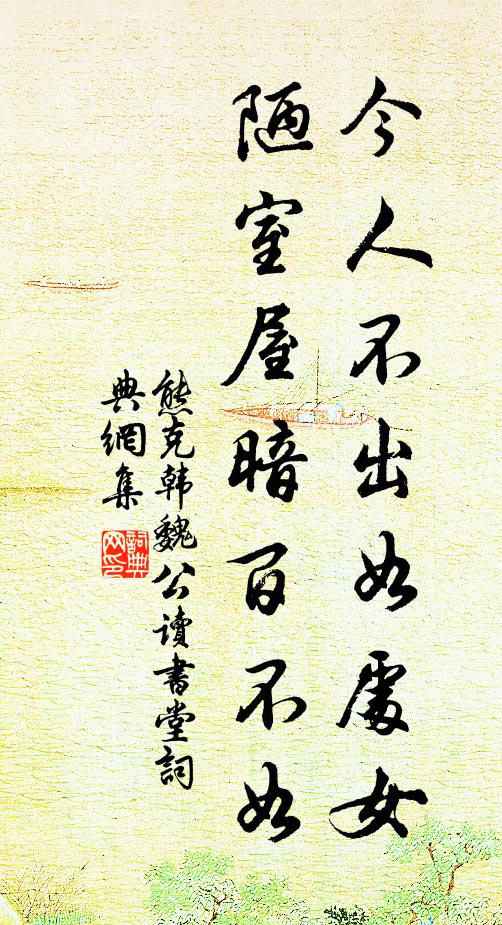 今人不出如處女
陋室屋暗百不如
熊克韩魏公讀書堂詞
典網集
詞典
网印